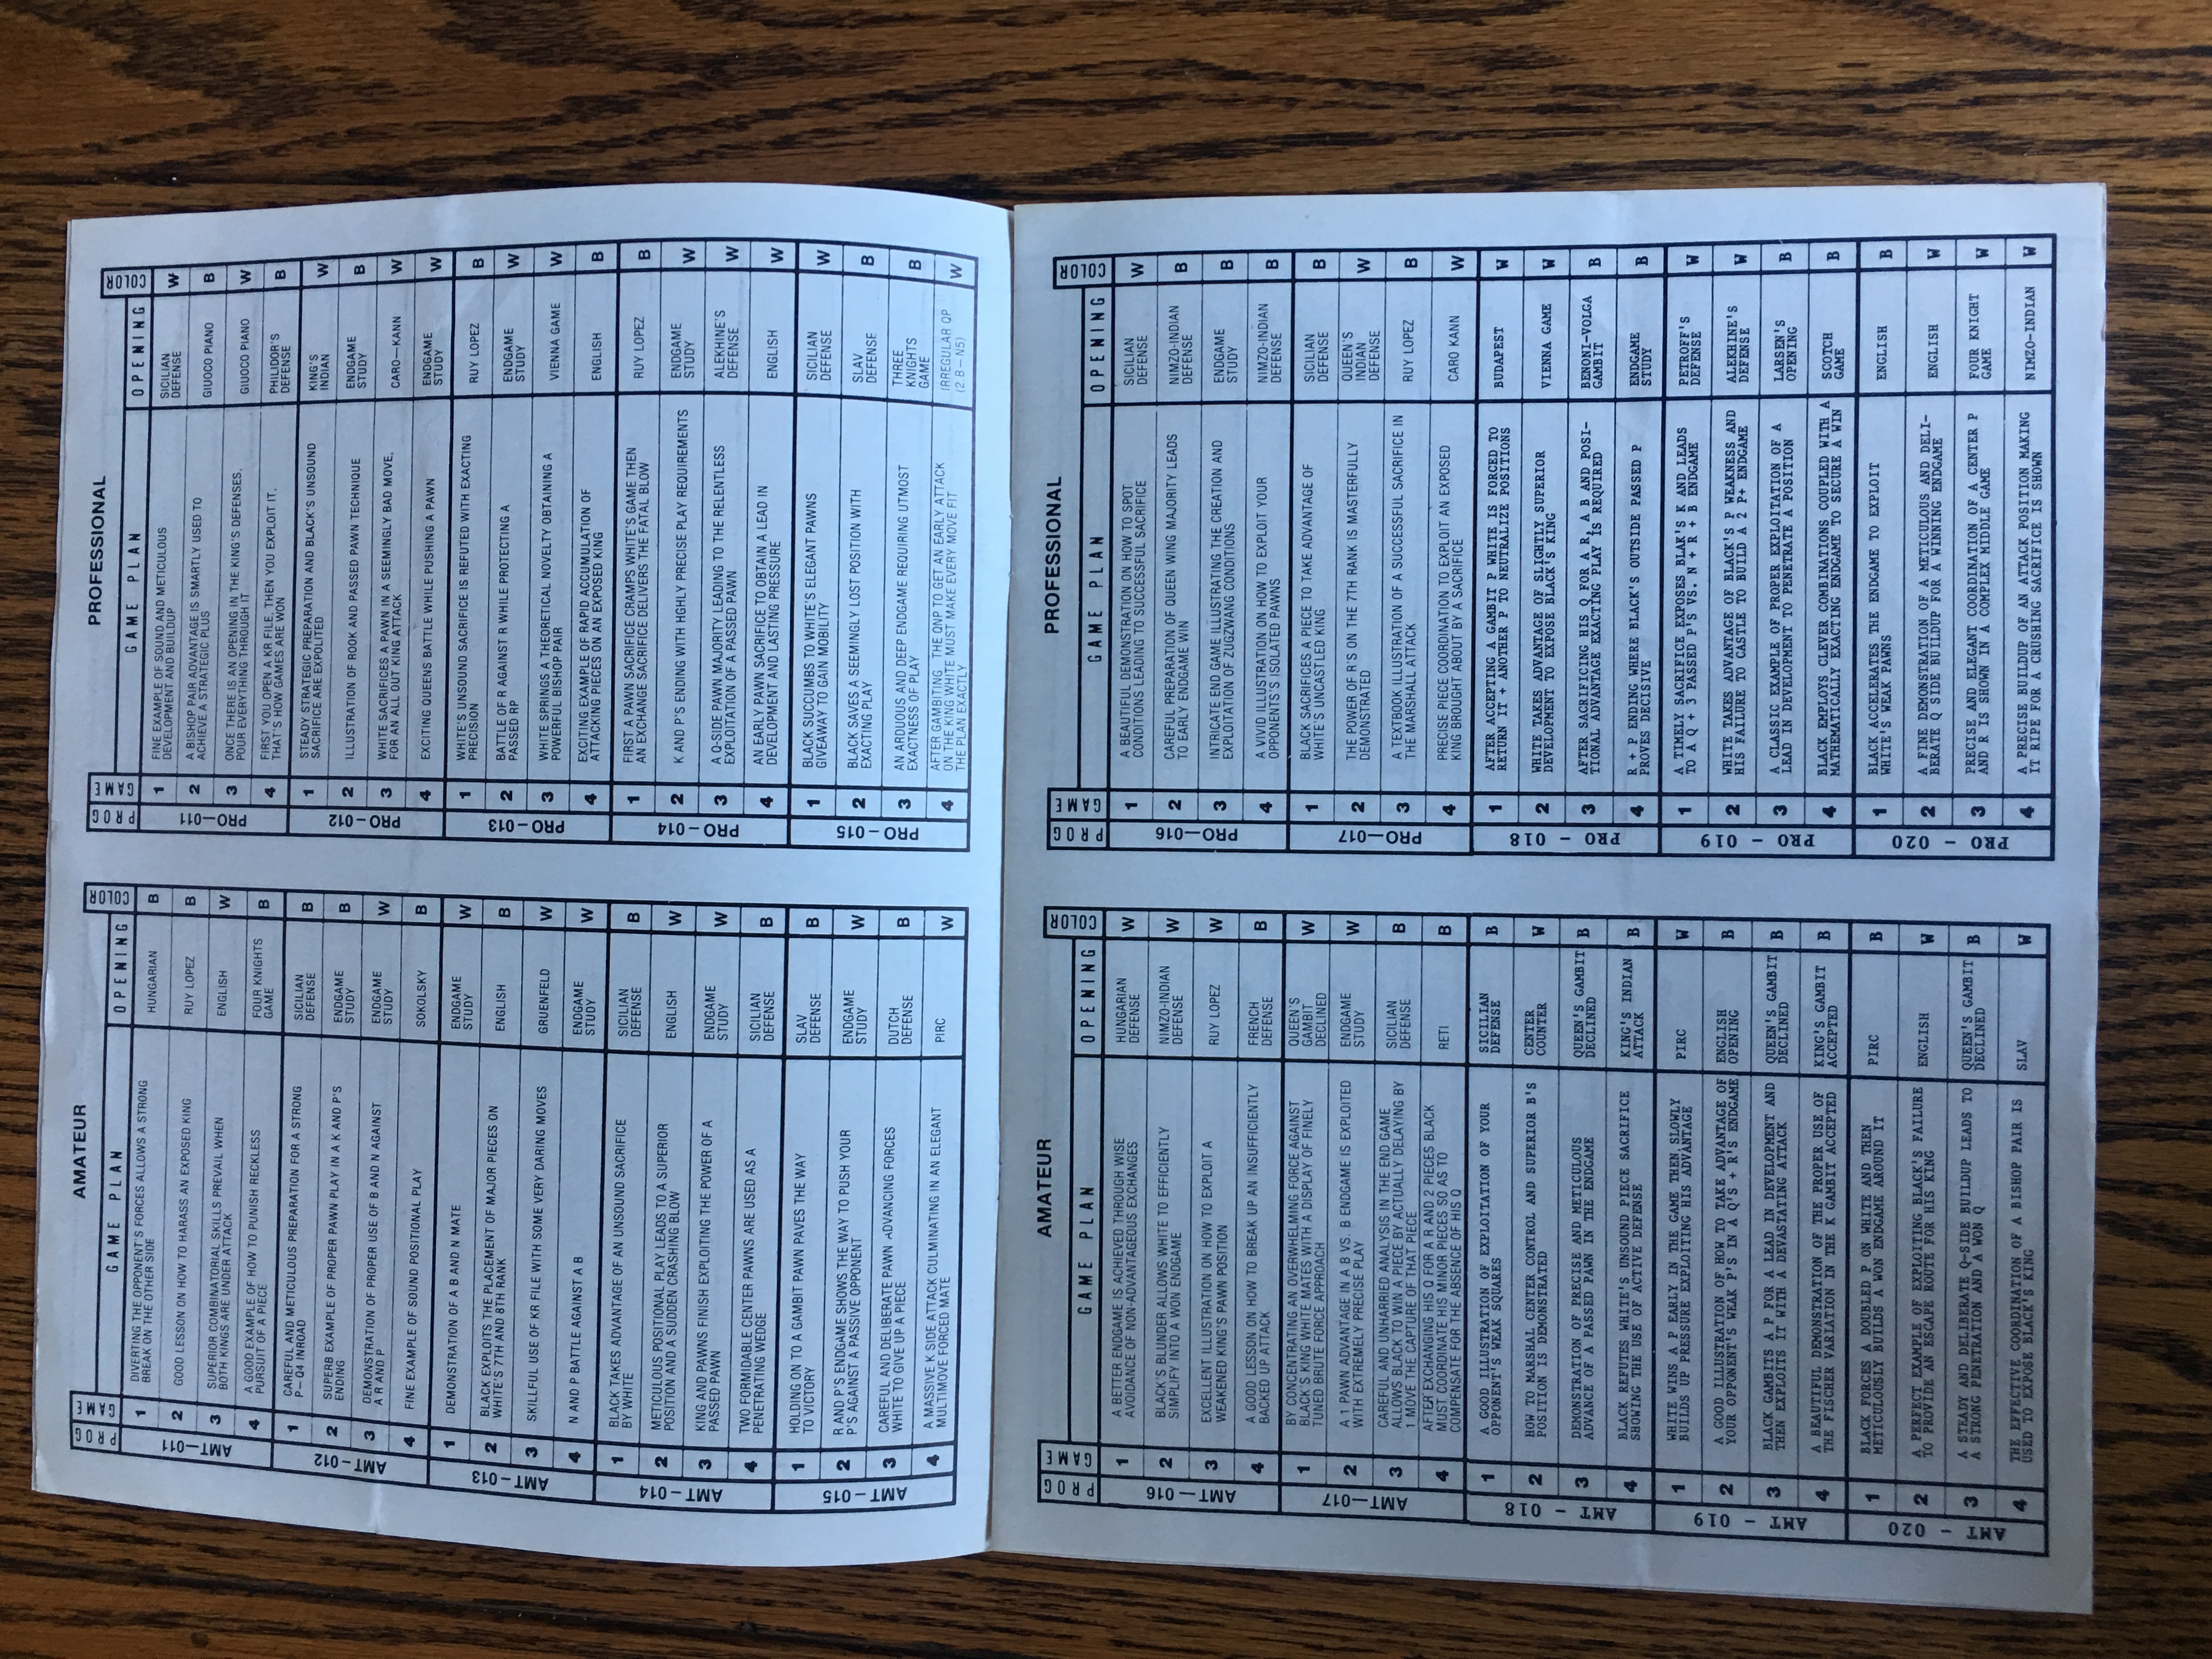 AMATEUR
PROG GAME GAME PLAN OPENING COLOR
AMT-011
1 DIVERTING THE OPPONENT'S FORCES ALLOWS A STRONG HUNGARIAN B
BREAK ON THE OTHER SIDE
2 GOOD LESSON ON HOW TO HARASS AN EXPOSED KING RUY LOPEZ B
3 SUPERIOR COMBINATORIAL SKILLS PREVAIL WHEN ENGLISH W
BOTH KINGS ARE UNDER ATTACK
4 A GOOD EXAMPLE OF HOW TO PUNISH RECKLESS FOUR KNIGHTS B
PURSUIT OF A PIECE GAME
AMT-012
1 CAREFUL AND METICULOUS PREPARATION FOR A STRONG SICILIAN B
P-Q4 INROAD DEFENSE
2 SUPERB EXAMPLE OF PROPER PAWN PLAY IN A K AND P'S ENDGAME B
ENDING STUDY
3 DEMONSTRATION OF PROPER USE OF B AND N AGAINST ENDGAME W
A R AND P STUDY
4 FINE EXAMPLE OF SOUND POSITIONAL PLAY SOKOLSKY B
AMT-013
1 DEMONSTRATION OF A B AND N MATE ENDGAME W
STUDY
2 BLACK EXPLOITS THE PLACEMENT OF MAJOR PIECES ON ENGLISH B
WHITE'S 7TH AND 8TH RANK
3 SKILLFUL USE OF KR FILE WITH SOME VERY DARING MOVES GRUENFELD W
4 N AND P BATTLE AGAINST A B ENDGAME W
STUDY
AMT-014
1 BLACK TAKES ADVANTAGE OF AN UNSOUND SACRIFICE SICILIAN B
BY WHITE DEFENSE
2 METICULOUS POSITIONAL PLAY LEADS TO A SUPERIOR ENGLISH W
POSITION AND A SUDDEN CRASHING BLOW
3 KING AND PAWNS FINISH EXPLOITING THE POWER OF A ENDGAME W
PASSED PAWN STUDY
4 TWO FORMIDABLE CENTER PAWNS ARE USED AS A SICILIAN B
PENETRATING WEDGE DEFENSE
AMT-015
1 HOLDING ON TO A GAMBIT PAWN PAVES THE WAY SLAV B
TO VICTORY DEFENSE
2 R AND P'S ENDGAME SHOWS THE WAY TO PUSH YOUR ENDGAME W
P'S AGAINST A PASSIVE OPPONENT STUDY
3 CAREFUL AND DELIBERATE PAWN ADVANCING FORCES DUTCH B
WHITE TO GIVE UP A PIECE DEFENSE
4 A MASSIVE K SIDE ATTACK CULMINATING IN AN ELEGANT PIRC W
MULTIMOVE FORCED MATE
PROFESSIONAL
PROG GAME GAME PLAN OPENING COLOR
PRO-011
1 FINE EXAMPLE OF SOUND AND METICULOUS SICILIAN W
DEVELOPMENT AND BUILDUP DEFENSE
2 A BISHOP PAIR ADVANTAGE IS SMARTLY USED TO GIUOCO PIANO B
ACHIEVE A STRATEGIC PLUS
3 ONCE THERE IS AN OPENING IN THE KING'S DEFENSES, GIUOCO PIANO W
POUR EVERYTHING THROUGH IT
4 FIRST YOU OPEN A KR FILE, THEN YOU EXPLOIT IT, PHILIDOR'S B
THAT'S HOW GAMES ARE WON DEFENSE
PRO-012
1 STEADY STRATEGIC PREPARATION AND BLACK'S UNSOUND KING'S W
SACRIFICE ARE EXPOLITED INDIAN
2 ILLUSTRATION OF ROOK AND PASSED PAWN TECHNIQUE ENDGAME B
STUDY
3 WHITE SACRIFICES A PAWN IN A SEEMINGLY BAD MOVE, CARO-KANN W
FOR AN ALL OUT KING ATTACK
4 EXCITING QUEENS BATTLE WHILE PUSHING A PAWN ENDGAME W
STUDY
PRO-013
1 WHITE'S UNSOUND SACRIFICE IS REFUTED WITH EXACTING RUY LOPEZ B
PRECISION
2 BATTLE OF R AGAINST R WHILE PROTECTING A ENDGAME W
PASSED RP STUDY
3 WHITE SPRINGS A THEORETICAL NOVELTY OBTAINING A VIENNA GAME W
POWERFUL BISHOP PAIR
4 EXCITING EXAMPLE OF RAPID ACCUMULATION OF ENGLISH B
ATTACKING PIECES ON AN EXPOSED KING
PRO-014
1 FIRST A PAWN SACRIFICE CRAMPS WHITE'S GAME THEN RUY LOPEZ B
AN EXCHANGE SACRIFICE DELIVERS THE FATAL BLOW
2 K AND P'S ENDING WITH HIGHLY PRECISE PLAY REQUIREMENTS ENDGAME W
STUDY
3 A Q-SIDE PAWN MAJORITY LEADING TO THE RELENTLESS ALEKHINE'S W
EXPLOITATION OF A PASSED PAWN DEFENSE
4 AN EARLY PAWN SACRIFICE TO OBTAIN A LEAD IN ENGLISH W
DEVELOPMENT AND LASTING PRESSURE
PRO-015
1 BLACK SUCCUMBS TO WHITE'S ELEGANT PAWNS SICILIAN W
GIVEAWAY TO GAIN MOBILITY DEFENSE
2 BLACK SAVES A SEEMINGLY LOST POSITION WITH SLAV B
EXACTING PLAY DEFENSE
3 AN ARDUOUS AND DEEP ENDGAME REQUIRING UTMOST THREE B
EXACTNESS OF PLAY KNIGHTS
GAME
4 AFTER GAMBITING THE QNP TO GET AN EARLY ATTACK IRREGULAR QP W
ON THE KING WHITE MUST MAKE EVERY MOVE FIT (2.B-N5)
THE PLAN EXACTLY
AMATEUR
PROG GAME GAME PLAN OPENING COLOR
AMT-016
1 A BETTER ENDGAME IS ACHIEVED THROUGH WISE HUNGARIAN W
AVOIDANCE OF NON-ADVANTAGEOUS EXCHANGES DEFENSE
2 BLACK'S BLUNDER ALLOWS WHITE TO EFFICIENTLY NIMZO-INDIAN W
SIMPLIFY INTO A WON ENDGAME DEFENSE
3 EXCELLENT ILLUSTRATION ON HOW TO EXPLOIT A RUY LOPEZ W
WEAKENED KING'S PAWN POSITION
4 A GOOD LESSON ON HOW TO BREAK UP AN INSUFFICIENTLY FRENCH B
BACKED UP ATTACK DEFENSE
AMT-017
1 BY CONCENTRATING AN OVERWHELMING FORCE AGAINST QUEEN'S W
BLACK'S KING WHITE MATES WITH A DISPLAY OF FINELY GAMBIT
TUNED BRUTE FORCE APPROACH DECLINED
2 A 1 PAWN ADVANTAGE IN A B VS. B ENDGAME IS EXPLOITED ENDGAME W
WITH EXTREMELY PRECISE PLAY STUDY
3 CAREFUL AND UNHARRIED ANALYSIS IN THE END GAME SICILIAN B
ALLOWS BLACK TO WIN A PIECE BY ACTUALLY DELAYING BY DEFENSE
1 MOVE THE CAPTURE OF THAT PIECE
4 AFTER EXCHANGING HIS Q FOR A R AND 2 PIECES BLACK RETI B
MUST COORDINATE HIS MINOR PIECES SO AS TO
COMPENSATE FOR THE ABSENCE OF HIS Q
AMT - 018
1 A GOOD ILLUSTRATION OF EXPLOITATION OF YOUR SICILIAN B
OPPONENT'S WEAK SQUARES DEFENSE
2 HOW TO MARSHAL CENTER CONTROL AND SUPERIOR B'S CENTER W
POSITION IS DEMONSTRATED COUNTER
3 DEMONSTRATION OF PRECISE AND METICULOUS QUEEN'S GAMBIT B
ADVANCE OF A PASSED PAWN IN THE ENDGAME DECLINED
4 BLACK REFUTES WHITE'S UNSOUND PIECE SACRIFICE KING'S INDIAN B
SHOWING THE USE OF ACTIVE DEFENSE ATTACK
AMT - 019
1 WHITE WINS A P EARLY IN THE GAME THEN SLOWLY PIRC W
BUILDS UP PRESSURE EXPLOITING HIS ADVANTAGE
2 A GOOD ILLUSTRATION OF HOW TO TAKE ADVANTAGE OF ENGLISH B
YOUR OPPONENT'S WEAK P'S IN A Q'S + R'S ENDGAME OPENING
3 BLACK GAMBITS A P FOR A LEAD IN DEVELOPMENT AND QUEEN'S GAMBIT B
THEN EXPLOITS IT WITH A DEVASTATING ATTACK DECLINED
4 A BEAUTIFUL DEMONSTRATION OF THE PROPER USE OF KING'S GAMBIT B
THE FISCHER VARIATION IN THE K GAMBIT ACCEPTED ACCEPTED
AMT - 020
1 BLACK FORCES A DOUBLED P ON WHITE AND THEN PIRC B
METICULOUSLY BUILDS A WON ENDGAME AROUND IT
2 A PERFECT EXAMPLE OF EXPLOITING BLACK'S FAILURE ENGLISH W
TO PROVIDE AN ESCAPE ROUTE FOR HIS KING
3 A STEADY AND DELIBERATE Q-SIDE BUILDUP LEADS TO QUEEN'S GAMBIT B
A STRONG PENETRATION AND A WON Q DECLINED
4 THE EFFECTIVE COORDINATION OF A BISHOP PAIR IS SLAV W
USED TO EXPOSE BLACK'S KING
PROFESSIONAL
PROG GAME GAME PLAN OPENING COLOR
PRO-016
1 A BEAUTIFUL DEMONSTRATION ON HOW TO SPOT SICILIAN W
CONDITIONS LEADING TO SUCCESSFUL SACRIFICE DEFENSE
2 CAREFUL PREPARATION OF QUEEN WING MAJORITY LEADS NIMZO-INDIAN B
TO EARLY ENDGAME WIN DEFENSE
3 INTRICATE END GAME ILLUSTRATING THE CREATION AND ENDGAME B
EXPLOITATION OF ZUGZWANG CONDITIONS STUDY
4 A VIVID ILLUSTRATION ON HOW TO EXPLOIT YOUR NIMZO-INDIAN B
OPPONENTS'S ISOLATED PAWNS DEFENSE
PRO-017
1 BLACK SACRIFICES A PIECE TO TAKE ADVANTAGE OF SICILIAN B
WHITE'S UNCASTLED KING DEFENSE
2 THE POWER OF R'S ON THE 7TH RANK IS MASTERFULLY QUEEN'S W
DEMONSTRATED INDIAN
DEFENSE
3 A TEXTBOOK ILLUSTRATION OF A SUCCESSFUL SACRIFICE IN RUY LOPEZ B
THE MARSHALL ATTACK
4 PRECISE PIECE COORDINATION TO EXPLOIT AN EXPOSED CARO KANN W
KING BROUGHT ABOUT BY A SACRIFICE
PRO - 018
1 AFTER ACCEPTING A GAMBIT P WHITE IS FORCED TO BUDAPEST W
RETURN IT + ANOTHER P TO NEUTRALIZE POSITIONS
2 WHITE TAKES ADVANTAGE OF SLIGHTLY SUPERIOR VIENNA GAME W
DEVELOPMENT TO EXPOSE BLACK'S KING
3 AFTER SACRIFICING HIS Q FOR A R, A B AND POSI- BENONI-VOLGA B
TIONAL ADVANTAGE EXACTING PLAY IS REQUIRED GAMBIT
4 R + P ENDING WHERE BLACK'S OUTSIDE PASSED P ENDGAME B
PROVES DECISIVE STUDY
PRO - 019
1 A TIMELY SACRIFICE EXPOSES BLAK'S K AND LEADS PETROFF'S W
TO A Q + 3 PASSED P'S VS. N + R + B ENDGAME DEFENSE
2 WHITE TAKES ADVANTAGE OF BLACK'S P WEAKNESS AND ALEKHINE'S W
HIS FAILURE TO CASTLE TO BUILD A 2 P+ ENDGAME DEFENSE
3 A CLASSIC EXAMPLE OF PROPER EXPLOITATION OF A LARSEN'S B
LEAD IN DEVELOPMENT TO PENETRATE A POSITION OPENING
4 BLACK EMPLOYS CLEVER COMBINATIONS COUPLED WITH A SCOTCH B
MATHEMATICALLY EXACTING ENDGAME TO SECURE A WIN GAME
PRO - 020
1 BLACK ACCELERATES THE ENDGAME TO EXPLOIT ENGLISH B
WHITE'S WEAK PAWNS
2 A FINE DEMONSTRATION OF A METICULOUS AND DELI- ENGLISH W
BERATE Q SIDE BUILDUP FOR A WINNING ENDGAME
3 PRECISE AND ELEGANT COORDINATION OF A CENTER P FOUR KNIGHT W
AND R IS SHOWN IN A COMPLEX MIDDLE GAME GAME
4 A PRECISE BUILDUP OF AN ATTACK POSITION MAKING NIMZO-INDIAN W
IT RIPE FOR A CRUSHING SACRIFICE IS SHOWN